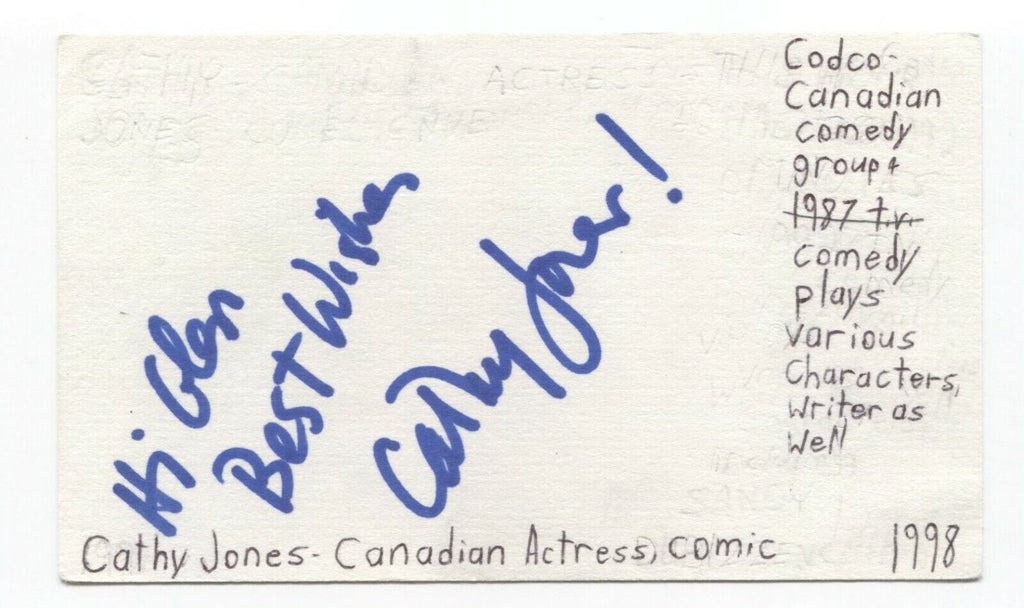 Hi Glen
Best Wishes
Cathy Jones!
Codco-
Canadian
comedy
group +
1987 t.v.
comedy
plays
various
characters,
writer as
well
Cathy Jones- Canadian Actress, comic
1998